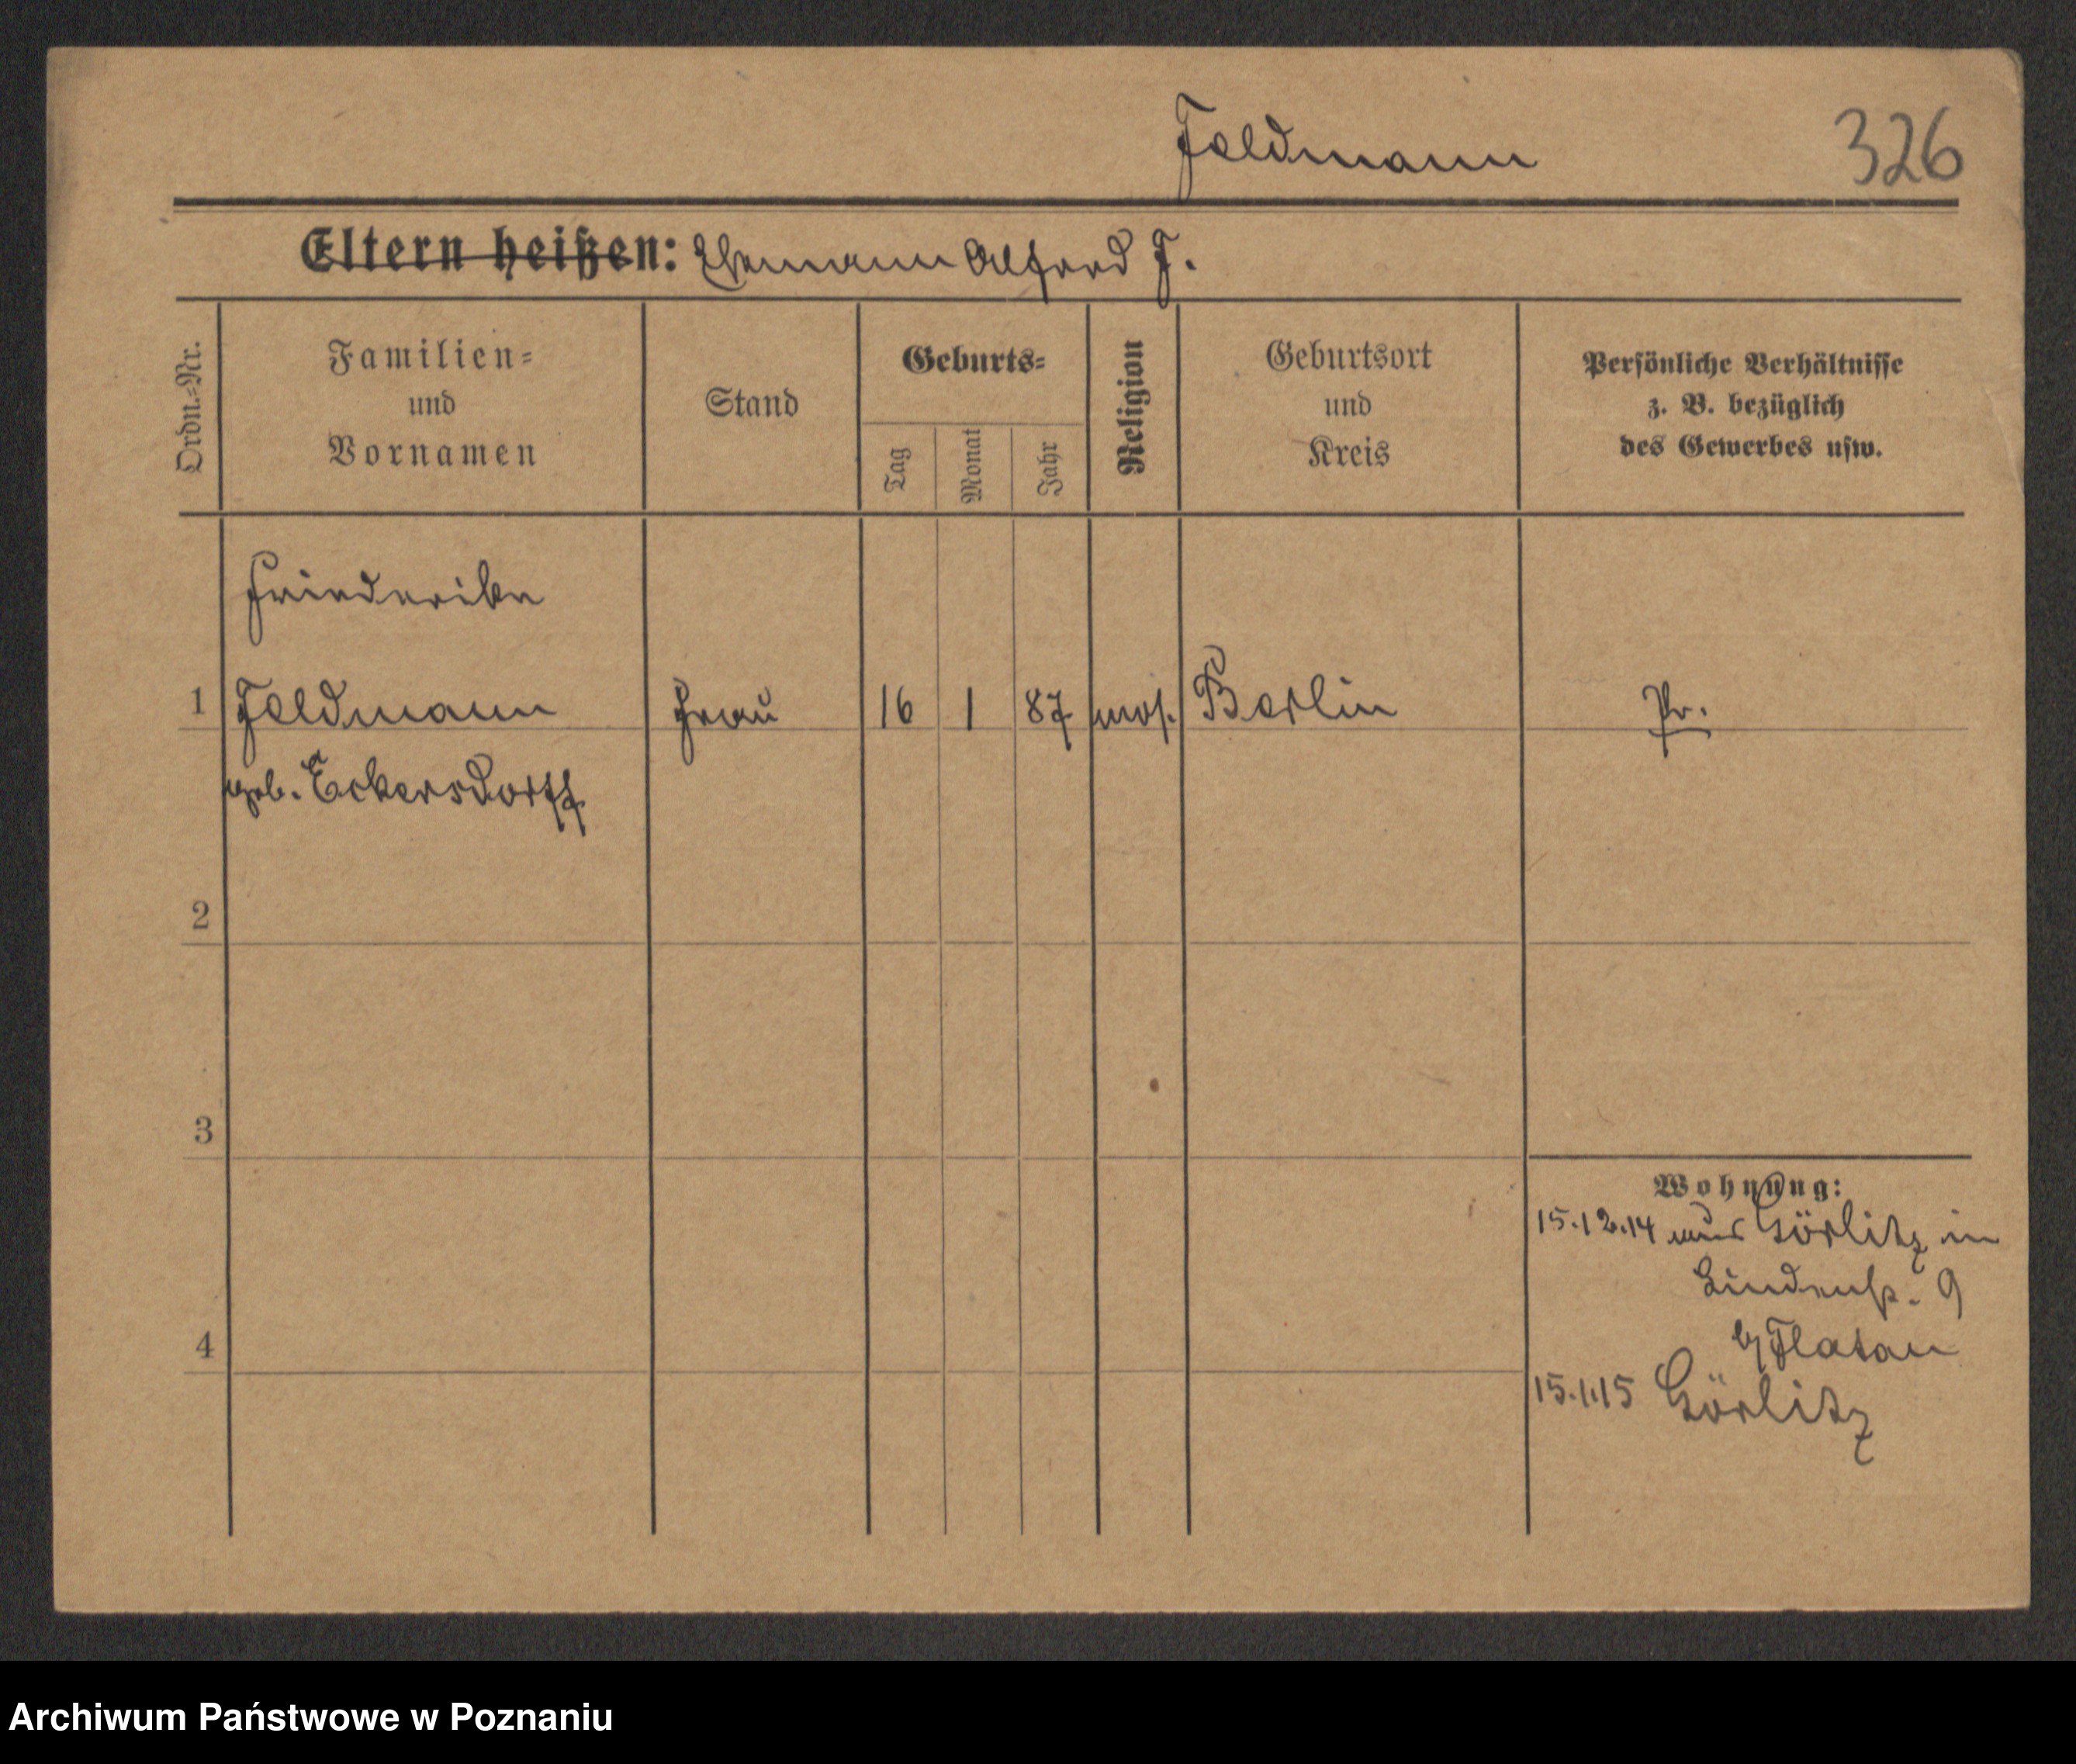 Feldmann 326
Eltern heißen: Ehemann Alfred F.
Ordn.-Nr. Familien- und Vornamen Stand Geburts- Tag Monat Jahr Religion Geburtsort und Kreis Persönliche Verhältnisse z. B. bezüglich des Gewerbes usw.
Friederike
1 Feldmann Frau 16 1 87 mos. Berlin Pr.
geb. Eckersdorff
2
3
Wohnung:
15.12.14 aus Görlitz in
Lindenstr. 9
b/ Flatau
4
15.1.15 Görlitz
Archiwum Państwowe w Poznaniu